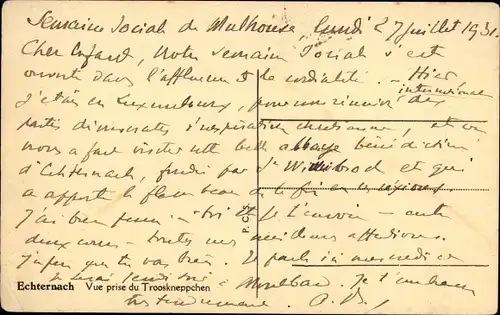 Semaine Sociale de Mulhouse, lundi 27 juillet 1931.
Cher Enfant, Notre Semaine Sociale s'est
ouverte dans l'affluence et la cordialité. — Hier
j'étais en Luxembourg, pour une réunion
internationale des
partis démocrates d'inspiration chrétienne, et on
nous a fait visiter cette belle abbaye bénédictine
d'Echternach, fondée par St Willibrod et qui
a apporté le flambeau de la foi en ces régions.
J'ai bien pensé à toi et je t'envoie
deux toutes mes meilleures affections.
J'espère que tu vas bien. Je pars mercredi
Je serai à Montbard. Je t'embrasse
tendrement. A. B.
P. C.
Echternach Vue prise du Trooskneppchen